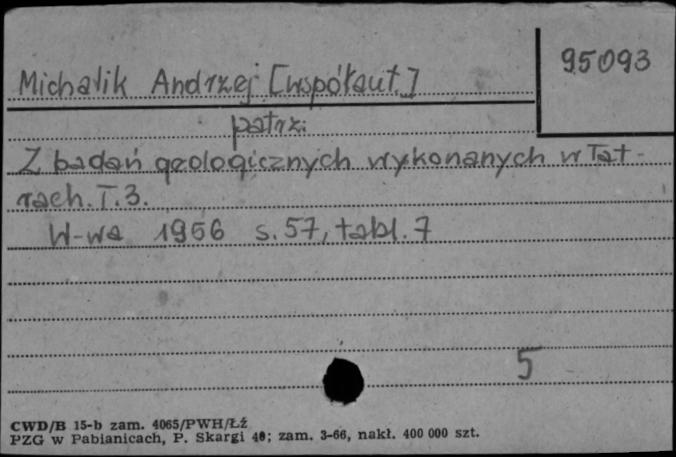 95093
Michalik Andrzej [współaut.]
patrz:
Z badań geologicznych wykonanych w Tat-
rach. T. 3.
W-wa 1956 s. 57, tabl. 7
5
CWD/B 15-b zam. 4065/PWH/Łź
PZG w Pabianicach, P. Skargi 40; zam. 3-66, nakł. 400 000 szt.